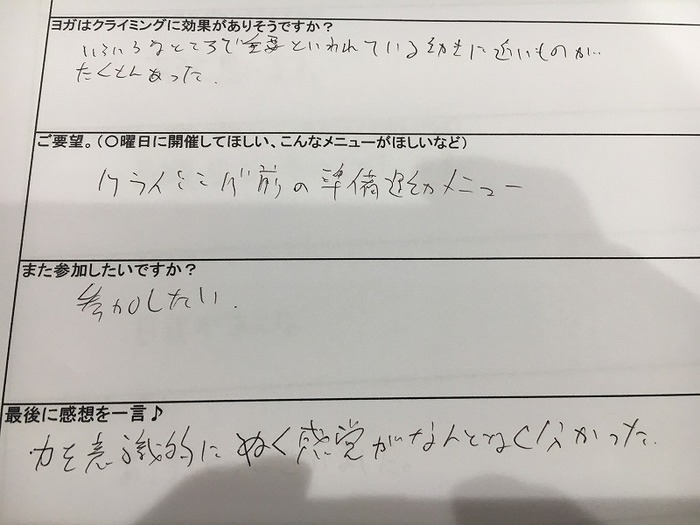 ヨガはクライミングに効果がありそうですか？
いろいろなところで重要といわれている動きに近いものが
たくさんあった.
ご要望。(〇曜日に開催してほしい、こんなメニューがほしいなど)
クライミング前の準備運動メニュー
また参加したいですか？
参加したい.
最後に感想を一言♪
力を意識的にぬく感覚がなんとなく分かった.